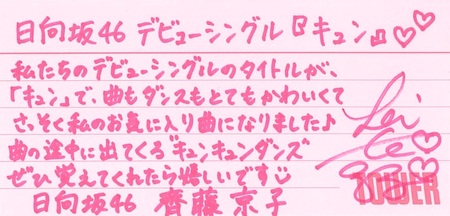 日向坂46 デビューシングル『キュン』♡♡
私たちのデビューシングルのタイトルが、
「キュン」で、曲もダンスもとてもかわいくて
さっそく私のお気に入り曲になりました♪
曲の途中に出てくる"キュンキュンダンス"
ぜひ覚えてくれたら嬉しいです
日向坂46 齊藤京子
TOWER